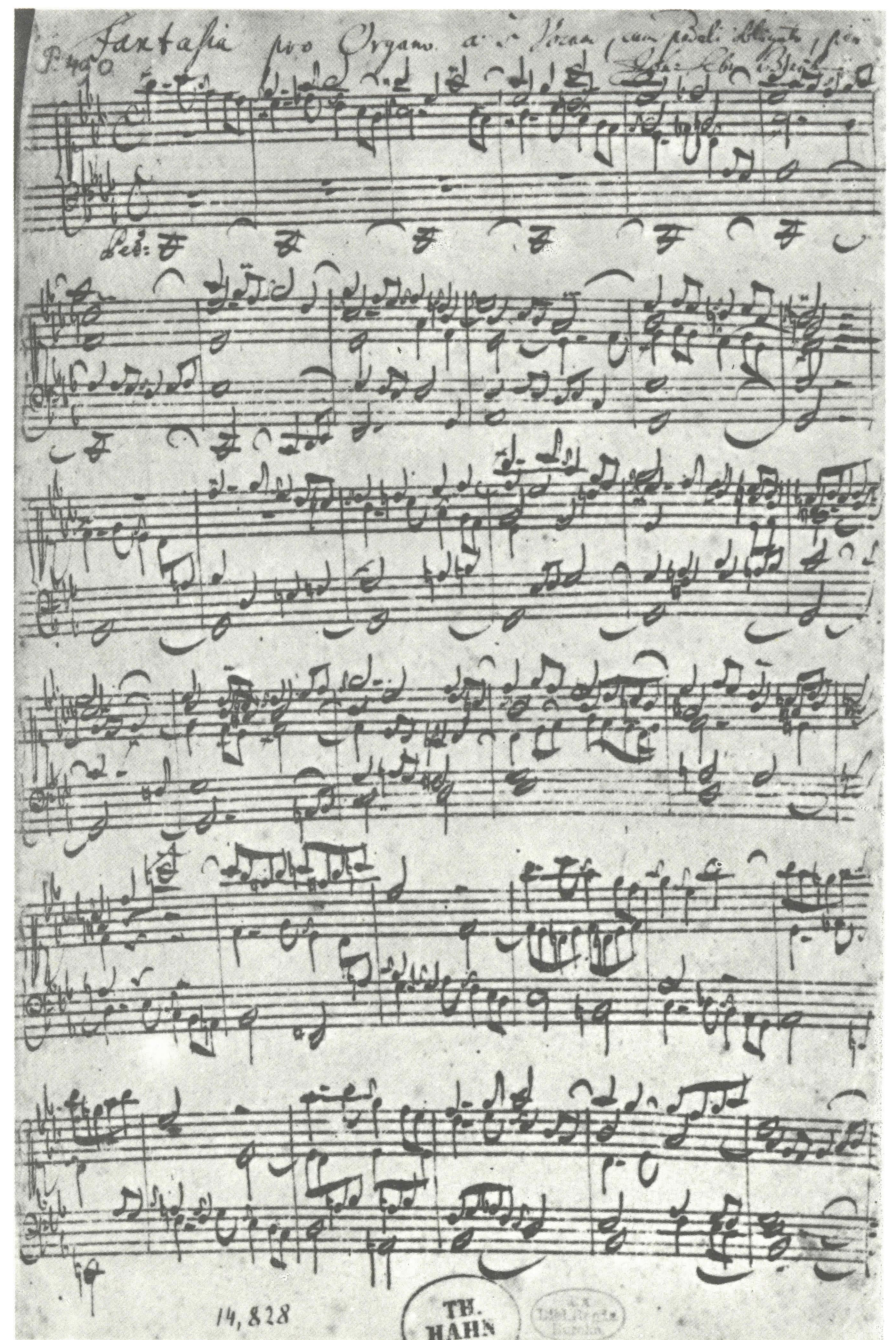 Fantasia pro Organo. a 5 Vocum, cum pedali obligato, per
P. 490.
Joan: Seb: Bach.
Ped:
14,828
TH.
HAHN